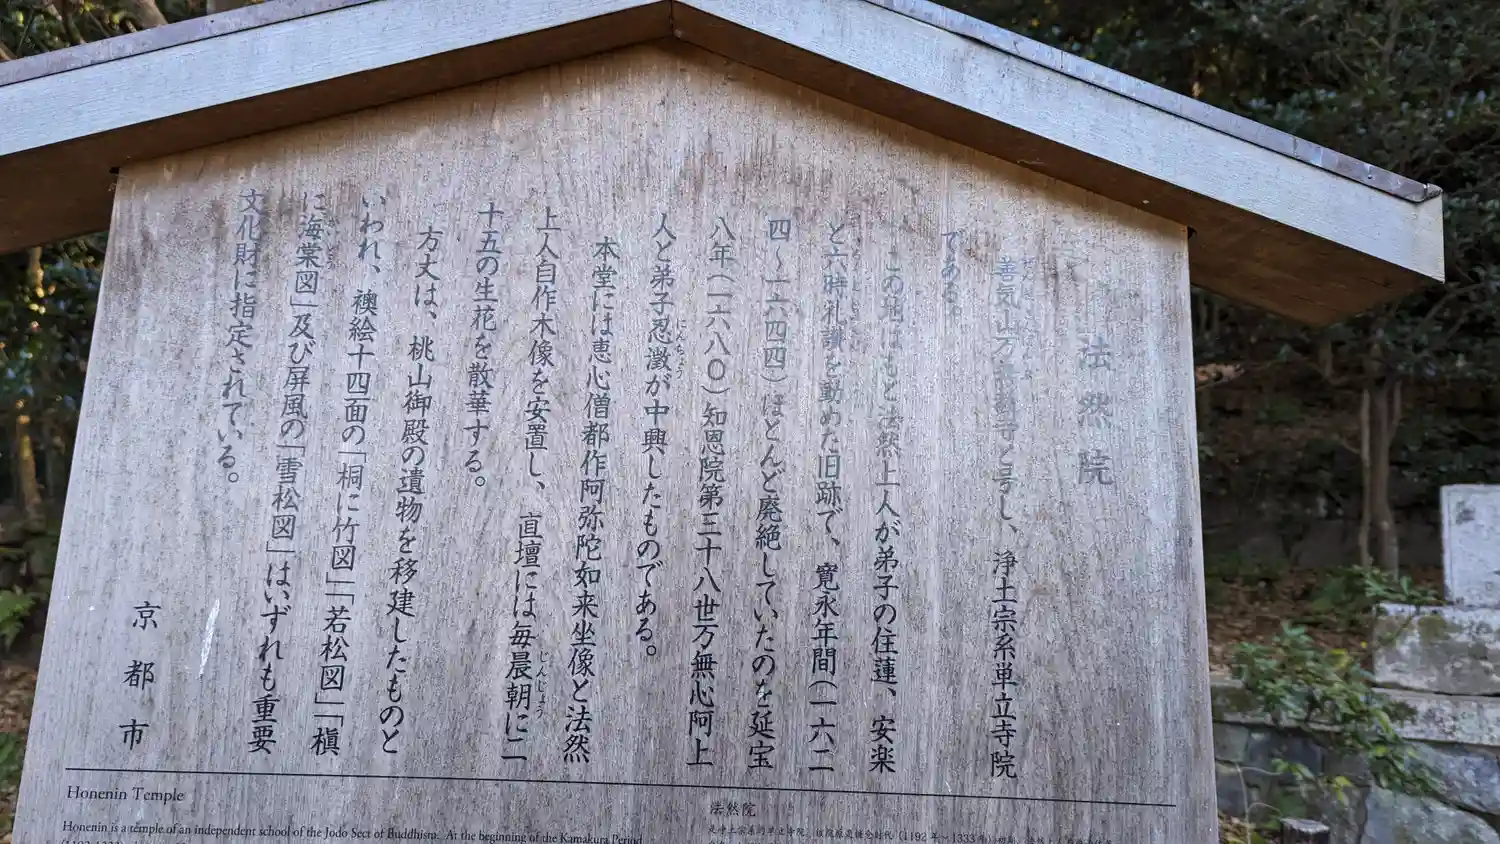 法然院
善気山万無教寺と号し、浄土宗系単立寺院
である。
この地はもと法然上人が弟子の住蓮、安楽
と六時礼讃を勤めた旧跡で、寛永年間(一六二
四~一六四四)ほとんど廃絶していたのを延宝
八年(一六八〇)知恩院第三十八世万無心阿上
人と弟子忍澂が中興したものである。
にんちょう
本堂には恵心僧都作阿弥陀如来坐像と法然
上人自作木像を安置し、直壇には毎晨朝に二
じんじょう
十五の生花を散華する。
方丈は、桃山御殿の遺物を移建したものと
いわれ、襖絵十四面の「桐に竹図」「若松図」「槇
に海棠図」及び屏風の「雪松図」はいずれも重要
文化財に指定されている。
京都市
Honenin Temple
Honenin is a temple of an independent school of the Jodo Sect of Buddhism. At the beginning of the Kamakura Period
法然院
(1192年~1333年)